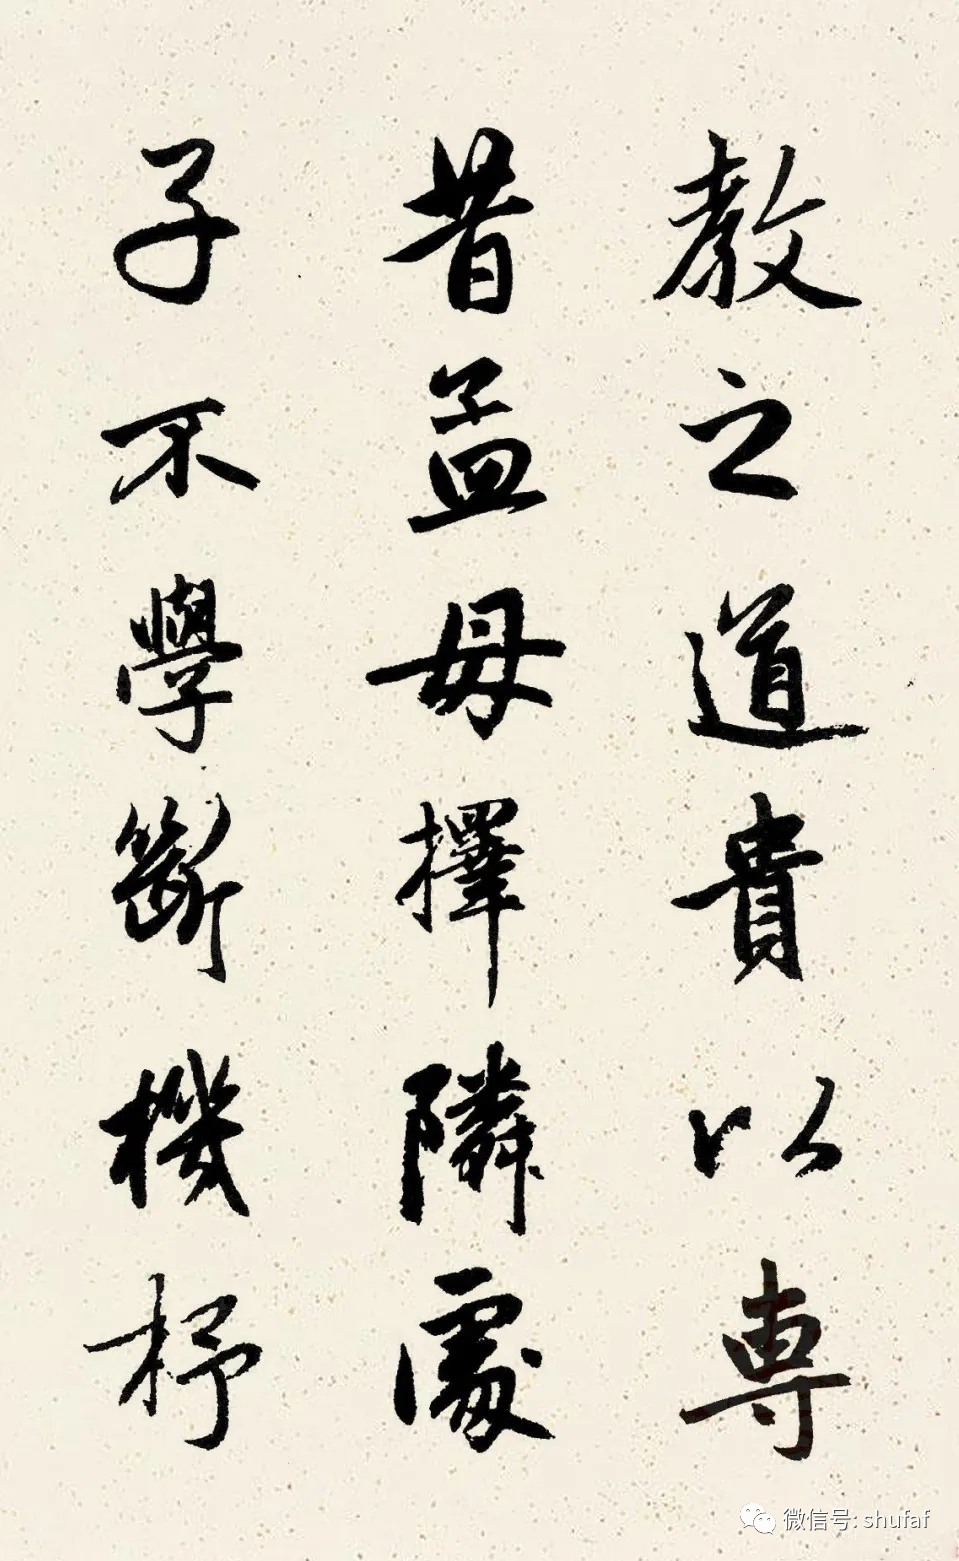 教之道貴以專
昔孟母擇隣處
子不學斷機杼
微信号: shufaf